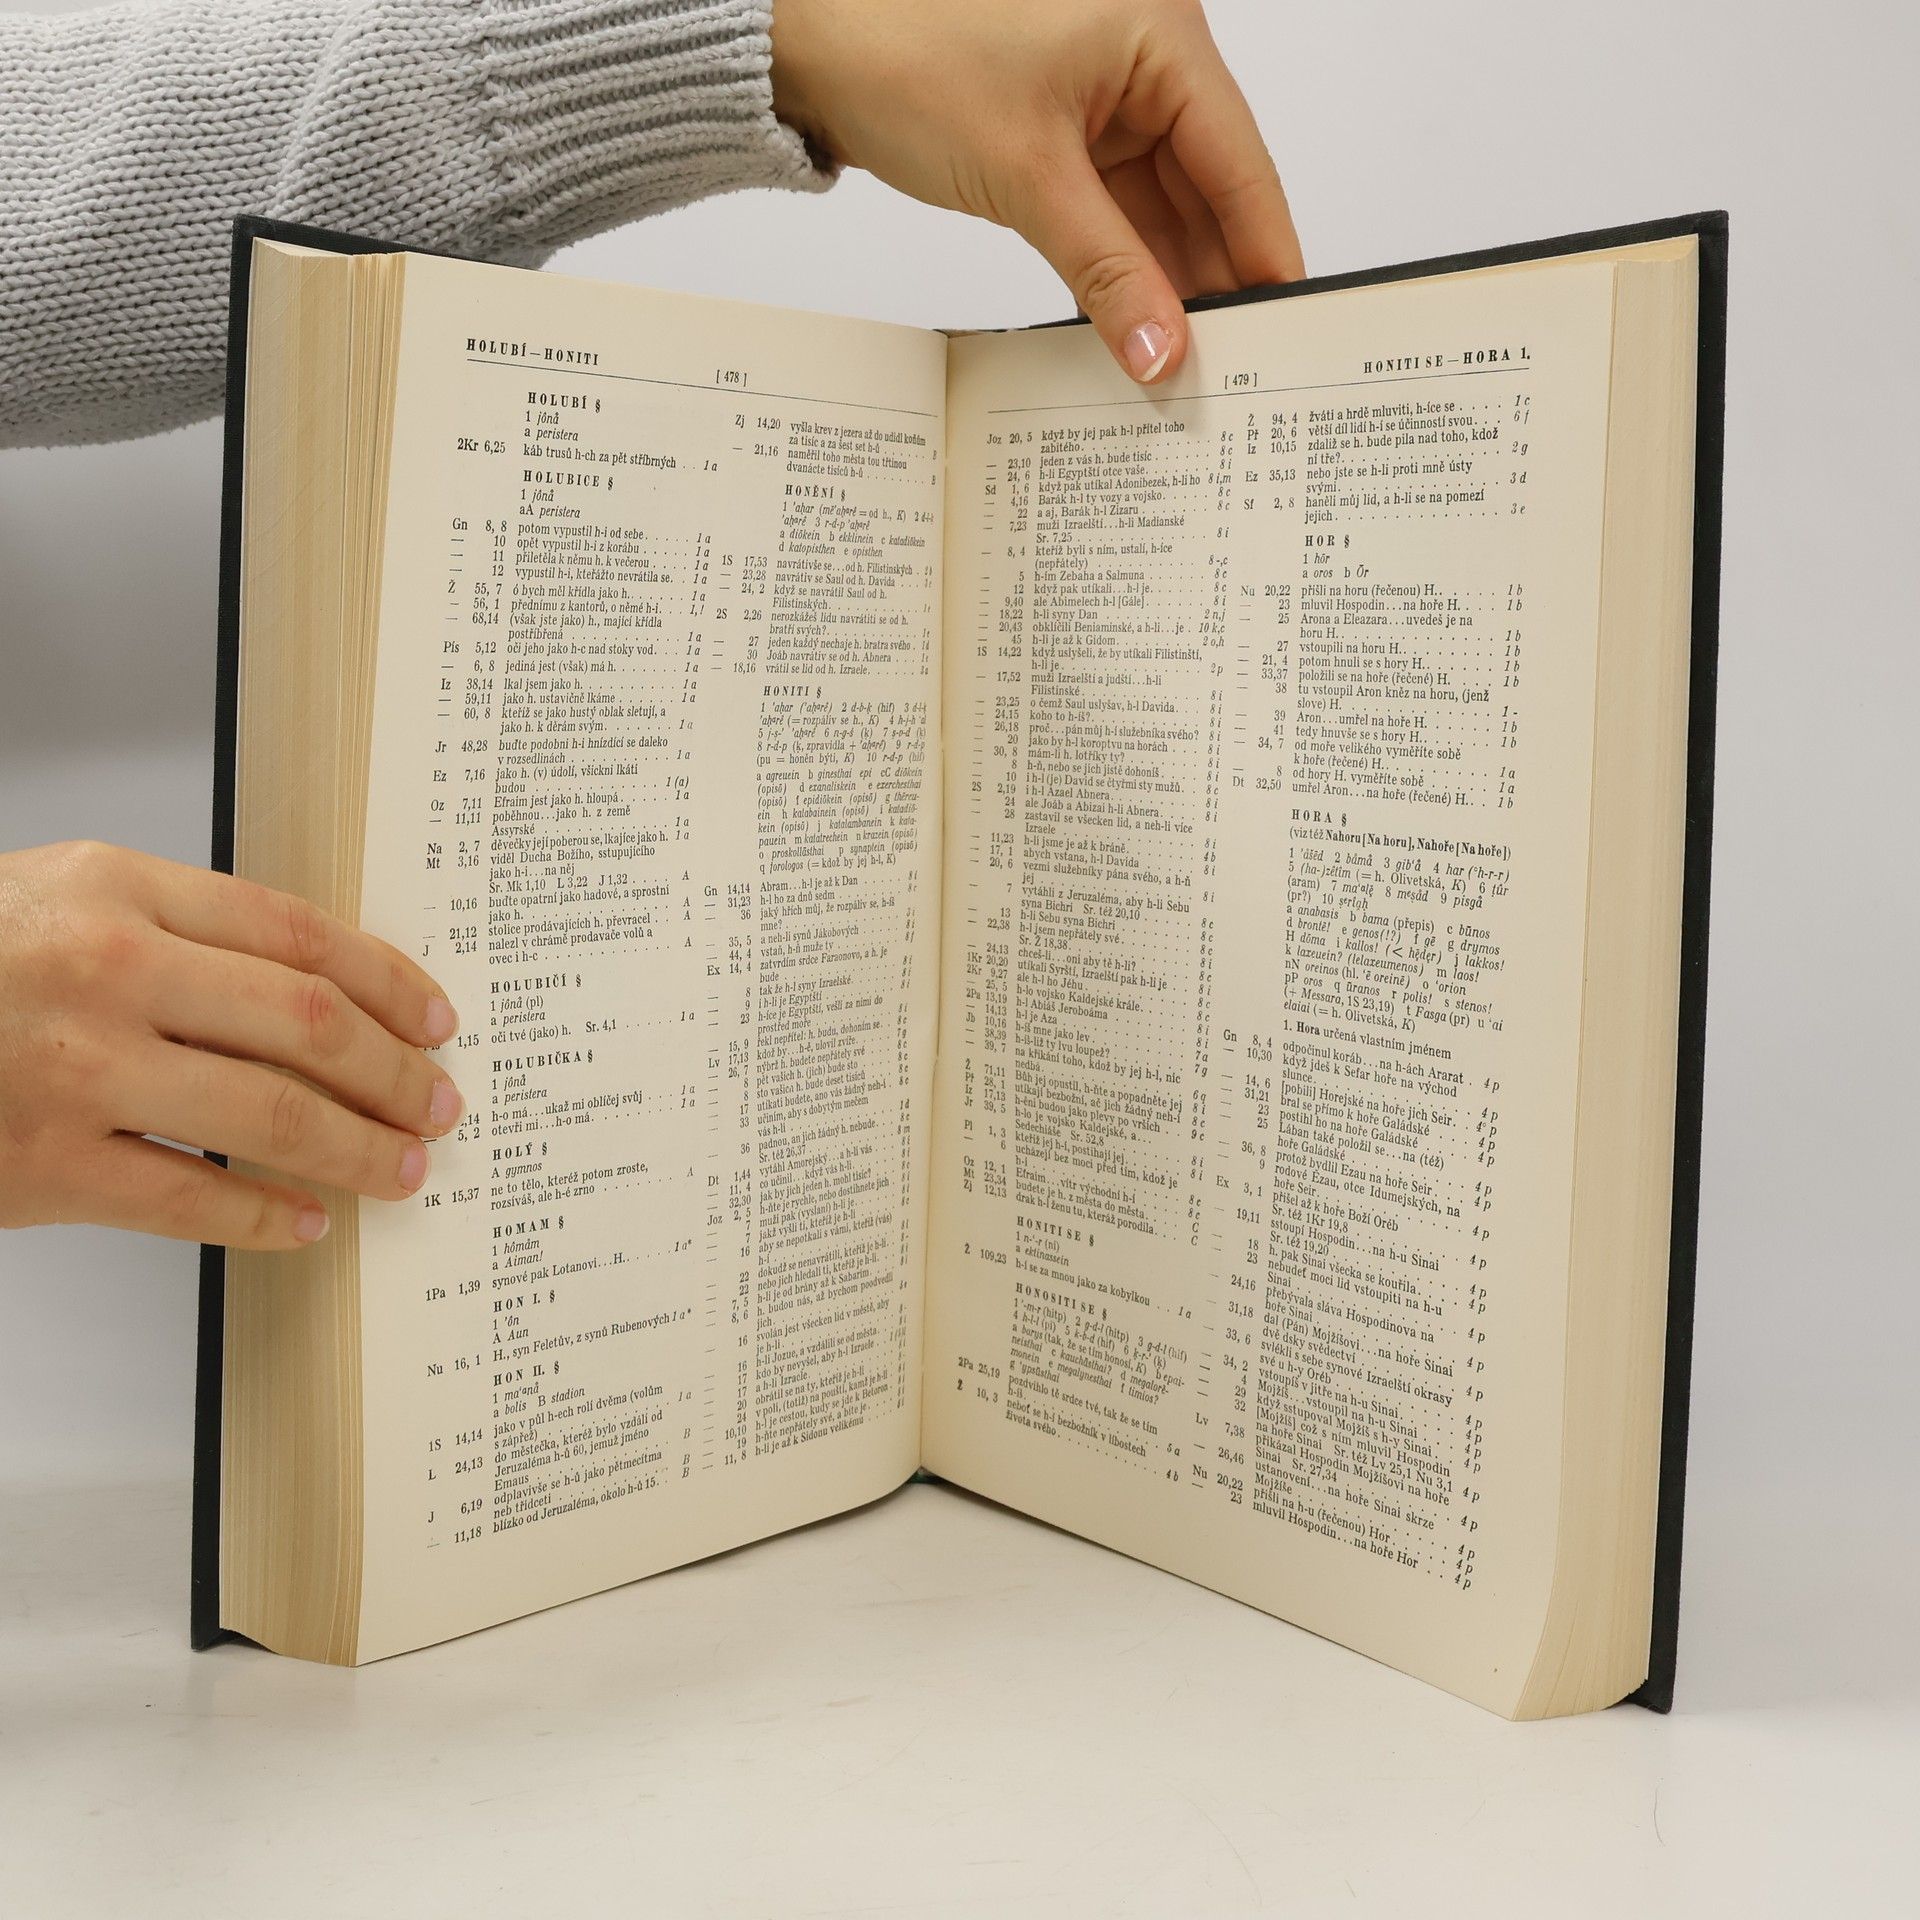 HOLUBÍ—HONITI
[ 478 ]
HOLUBÍ §
1 jônâ
a peristera
2Kr 6,25 káb trusů h-ch za pět stříbrných . . 1 a
HOLUBICE §
1 jônâ
aA peristera
Gn 8, 8 potom vypustil h-i od sebe. . . . . 1 a
— 10 opět vypustil h-i z korábu . . . . . 1 a
— 11 přiletěla k němu h. k večerou . . . . 1 a
— 12 vypustil h-i, kteřážto nevrátila se. . 1 a
Ž 55, 7 ó bych měl křídla jako h. . . . . . 1 a
— 56, 1 přednímu z kantorů, o němé h-i. . . 1,!
— 68,14 (však jste jako) h., mající křídla
postříbřená . . . . . . . . . . 1 a
Pís 5,12 oči jeho jako h-c nad stoky vod. . . 1 a
— 6, 8 jediná jest (však) má h. . . . . . 1 a
Iz 38,14 lkal jsem jako h. . . . . . . . . 1 a
— 59,11 jako h. ustavičně lkáme . . . . . . 1 a
— 60, 8 kteříž se jako hustý oblak sletují, a
jako h. k děrám svým. . . . . . . 1 a
Jr 48,28 buďte podobni h-i hnízdící se daleko
v rozsedlinách . . . . . . . . . 1 a
Ez 7,16 jako h. (v) údolí, všickni lkátí
budou . . . . . . . . . . . . 1 (a)
Oz 7,11 Efraim jest jako h. hloupá. . . . . 1 a
— 11,11 poběhnou...jako h. z země
Assyrské . . . . . . . . . . . 1 a
Na 2, 7 děvečky její poberou se, lkajíce jako h. 1 a
Mt 3,16 viděl Ducha Božího, sstupujícího
jako h-i...na něj
Sr. Mk 1,10 L 3,22 J 1,32 . . . . A
— 10,16 buďte opatrní jako hadové, a sprostní
jako h. . . . . . . . . . . . . A
— 21,12 stolice prodávajících h. převracel . . A
J 2,14 nalezl v chrámě prodavače volů a
ovec i h-c . . . . . . . . . . . A
HOLUBIČÍ §
1 jônâ (pl)
a peristera
1,15 oči tvé (jako) h. Sr. 4,1 . . . . . . 1 a
HOLUBIČKA §
1 jônâ
a peristera
,14 h-o má...ukaž mi obličej svůj . . . 1 a
5, 2 otevři mi...h-o má. . . . . . . . 1 a
HOLÝ §
A gymnos
1K 15,37 ne to tělo, kteréž potom zroste,
rozsíváš, ale h-é zrno . . . . . . . A
HOMAM §
1 hômâm
a Aiman!
1Pa 1,39 synové pak Lotanovi...H. . . . . . 1 a*
HON I. §
1 'ôn
A Aun
Nu 16, 1 H., syn Feletův, z synů Rubenových 1 a*
HON II. §
1 ma'anâ
a bolis B stadion
1S 14,14 jako v půl h-ech rolí dvěma (volům
s zápřež) . . . . . . . . . . . 1 a
L 24,13 do městečka, kteréž bylo vzdálí od
Jeruzaléma h-ů 60, jemuž jméno
Emaus . . . . . . . . . . . . B
J 6,19 odplavivše se h-ů jako pětmecítma
neb třidceti . . . . . . . . . . B
— 11,18 blízko od Jeruzaléma, okolo h-ů 15. . B
Zj 14,20 vyšla krev z jezera až do udidl koňům
za tisíc a za šest set h-ů . . . . . B
— 21,16 naměřil toho města tou třtinou
dvanácte tisíců h-ů . . . . . . . . B
HONĚNÍ §
1S 17,53 navrátivše se...od h. Filistinských .
— 23,28 navrátiv se Saul od h. Davida . . .
— 24, 2 když se navrátil Saul od h.
Filistinských. . . . . . . . . .
2S 2,26 nerozkážeš lidu navrátiti se od h.
bratří svých? . . . . . . . . .
— 27 jeden každý nechaje h. bratra svého .
— 30 Joáb navrátiv se od h. Abnera . . .
— 18,16 vrátil se lid od h. Izraele. . . . .
HONITI §
Gn 14,14 Abram...h-l je až k Dan . . . . .
— 31,23 h-l ho za dnů sedm . . . . . . .
— 36 jaký hřích můj, že rozpáliv se, h-íš
mne? . . . . . . . . . . . .
— 35, 5 a neh-li synů Jákobových . . . . .
— 44, 4 vstaň, h-ň muže ty . . . . . . .
Ex 14, 4 zatvrdím srdce Faraonovo, a h. je
bude . . . . . . . . . . . .
— 8 tak že h-l syny Izraelské. . . . . .
— 9 i h-li je Egyptští . . . . . . . .
— 23 h-íce je Egyptští, vešli za nimi do
prostřed moře . . . . . . . . .
— 15, 9 řekl nepřítel: h. budu, dohoním se. .
Lv 17,13 kdož by...h-ě, ulovil zvíře. . . . .
— 26, 7 nýbrž h. budete nepřátely své . . .
— 8 pět vašich h. (jich) bude sto . . . .
— 8 sto vašich h. bude deset tisíců . . .
— 17 utíkati budete, ano vás žádný neh-í .
— 33 učiním, aby s dobytým mečem
vás h-li . . . . . . . . . . .
— 36 padnou, an jich žádný h. nebude. . .
Sr. též 26,37 . . . . . . . . .
Dt 1,44 vytáhl Amorejský...a h-li vás . . .
— 11, 4 co učinil...když vás h-li. . . . . .
— 32,30 jak by jich jeden h. mohl tisíc? . . .
Joz 2, 5 h-ňte je rychle, nebo dostihnete jich .
— 7 muži pak (vyslaní) h-li je. . . . . .
— 7 jakž vyšli ti, kteříž je h-li . . . . .
— 16 aby se nepotkali s vámi, kteříž (vás)
h-í . . . . . . . . . . . . .
— 22 dokudž se nenavrátili, kteříž je h-li. .
— 22 nebo jich hledali ti, kteříž je h-li. . .
— 7, 5 h-li je od brány až k Sabarim. . . .
— 8, 6 h. budou nás, až bychom poodvedli
jich. . . . . . . . . . . . .
— 16 svolán jest všecken lid v městě, aby
je h-li . . . . . . . . . . . .
— 16 h-li Jozue, a vzdálili se od města. . .
— 17 kdo by nevyšel, aby h-l Izraele . . .
— 17 a h-li Izraele. . . . . . . . . .
— 20 obrátil se na ty, kteříž je h-li . . . .
— 24 v poli, (totiž) na poušti, kamž je h-li .
— 10,10 h-l je cestou, kudy se jde k Betoron. .
— 19 h-ňte nepřátely své, a bíte je . . . .
— 11, 8 h-li je až k Sidonu velikému . . . .
HONITI SE—HORA 1.
[ 479 ]
Joz 20, 5 když by jej pak h-l přítel toho
zabitého. . . . . . . . . . . . 8 c
— 23,10 jeden z vás h. bude tisíc . . . . . 8 c
— 24, 6 h-li Egyptští otce vaše. . . . . . . 8 i
Sd 1, 6 když pak utíkal Adonibezek, h-li ho 8 i,m
— 4,16 Barák h-l ty vozy a vojsko. . . . . 8 c
— 22 a aj, Barák h-l Zizaru . . . . . . 8 c
— 7,23 muži Izraelští...h-li Madianské
Sr. 7,25 . . . . . . . . . . . 8 i
— 8, 4 kteříž byli s ním, ustalí, h-íce
(nepřátely) . . . . . . . . . . 8 -,c
— 5 h-ím Zebaha a Salmuna . . . . . 8 c
— 12 když pak utíkali...h-l je. . . . . . 8 c
— 9,40 ale Abimelech h-l [Gále]. . . . . . 8 i
— 18,22 h-li syny Dan . . . . . . . . . 2 n,j
— 20,43 obklíčili Beniaminské, a h-li...je . 10 k,c
— 45 h-li je až k Gidom. . . . . . . . 2 o,h
1S 14,22 když uslyšeli, že by utíkali Filistinští,
h-li je . . . . . . . . . . . . 2 p
— 17,52 muži Izraelští a judští...h-li
Filistinské. . . . . . . . . . . 8 i
— 23,25 o čemž Saul uslyšav, h-l Davida. . . 8 i
— 24,15 koho to h-íš?. . . . . . . . . . 8 i
— 26,18 proč...pán můj h-í služebníka svého? 8 i
— 20 jako by h-l koroptvu na horách . . . 8 i
— 30, 8 mám-li h. lotříky ty? . . . . . . . 8 i
— 8 h-ň, nebo se jich jistě dohoníš. . . . 8 i
— 10 i h-l (je) David se čtyřmi sty mužů. . 8 c
2S 2,19 i h-l Azael Abnera. . . . . . . . 8 i
— 24 ale Joáb a Abizai h-li Abnera. . . . 8 i
— 28 zastavil se všecken lid, a neh-li více
Izraele . . . . . . . . . . . . 8 i
— 11,23 h-li jsme je až k bráně. . . . . . . 4 b
— 17, 1 abych vstana, h-l Davida . . . . . 8 i
— 20, 6 vezmi služebníky pána svého, a h-ň
jej . . . . . . . . . . . . . 8 i
— 7 vytáhli z Jeruzaléma, aby h-li Sebu
syna Bichri Sr. též 20,10 . . . .
— 13 h-li Sebu syna Bichri . . . . . .
— 22,38 h-l jsem nepřátely své. . . . . . .
Sr. Ž 18,38. . . . . . . . . .
— 24,13 chceš-li...oni aby tě h-li? . . . . .
1Kr 20,20 utíkali Syrští, Izraelští pak h-li je . .
2Kr 9,27 ale h-l ho Jéhu. . . . . . . . . .
— 25, 5 h-lo vojsko Kaldejské krále. . . . .
2Pa 13,19 h-l Abiáš Jeroboáma . . . . . . .
— 14,13 h-l je Aza . . . . . . . . . . .
Jb 10,16 h-íš mne jako lev. . . . . . . . . 7 a
— 38,39 h-íš-liž ty lvu loupež? . . . . . . . 7 g
— 39, 7 na křikání toho, kdož by jej h-l, nic
nedbá. . . . . . . . . . . . . 6 q
Ž 71,11 Bůh jej opustil, h-ňte a popadněte jej 8 i
Př 28, 1 utíkají bezbožní, ač jich žádný neh-í 8 i
Iz 17,13 h-ěni budou jako plevy po vrších . . 9 c
Jr 39, 5 h-lo je vojsko Kaldejské, a...
Sedechiáše Sr. 52,8 . . . . . . . 8 i
Pl 1, 3 kteříž jej h-í, postihají jej. . . . . . 8 i
— 6 ucházejí bez moci před tím, kdož je
h-í . . . . . . . . . . . . . 8 c
Oz 12, 1 Efraim...vítr východní h-í . . . . . 8 c
Mt 23,34 budete je h. z města do města. . . . C
Zj 12,13 drak h-l ženu tu, kteráž porodila. . . C
HONITI SE §
1 n-'-r (ni)
a ektinassein
Ž 109,23 h-í se za mnou jako za kobylkou . . 1 a
HONOSITI SE §
1 '-m-r (hitp) 2 g-d-l (hitp) 3 g-d-l (hif)
4 h-l-l (pi) 5 k-b-d (hif) 6 ķ-r-' (k)
2Pa 25,19 pozdvihlo tě srdce tvé, tak že se tím
h-íš. . . . . . . . . . . . . 5 a
Ž 10, 3 neboť se h-í bezbožník v libostech
života svého . . . . . . . . . . 4 b
Ž 94, 4 žváti a hrdě mluviti, h-íce se . . . . 1 c
Př 20, 6 větší díl lidí h-í se účinností svou. . . 6 f
Iz 10,15 zdaliž se h. bude pila nad toho, kdož
ní tře?. . . . . . . . . . . . . 2 g
Ez 35,13 nebo jste se h-li proti mně ústy
svými. . . . . . . . . . . . . 3 d
Sf 2, 8 haněli můj lid, a h-li se na pomezí
jejich. . . . . . . . . . . . . 3 e
HOR §
1 hôr
a oros b Ōr
Nu 20,22 přišli na horu (řečenou) H. . . . . 1 b
— 23 mluvil Hospodin...na hoře H. . . . 1 b
— 25 Arona a Eleazara...uvedeš je na
horu H. . . . . . . . . . . . 1 b
— 27 vstoupili na horu H. . . . . . . . 1 b
— 21, 4 potom hnuli se s hory H. . . . . . 1 b
— 33,37 položili se na hoře (řečené) H. . . . 1 b
— 38 tu vstoupil Aron kněz na horu, (jenž
slove) H. . . . . . . . . . . . 1 -
— 39 Aron...umřel na hoře H. . . . . . 1 b
— 41 tedy hnuvše se s hory H. . . . . . 1 b
— 34, 7 od moře velikého vyměříte sobě
k hoře (řečené) H. . . . . . . . . 1 a
— 8 od hory H. vyměříte sobě . . . . . 1 a
Dt 32,50 umřel Aron...na hoře (řečené) H. . . 1 b
HORA §
(viz též Nahoru [Na horu], Nahoře [Na hoře])
1 'ášēd 2 bāmâ 3 gib'â 4 har (°h-r-r)
5 (ha-)zētîm (= h. Olivetská, K) 6 ṭûr
(aram) 7 ma'alę 8 mesâd 9 pisgâ
(pr?) 10 ṣerîaḥ
a anabasis b bama (přepis) c būnos
d brontē! e genos(!?) f gē g drymos
H dōma i kallos! (< hęder) j lakkos!
k laxeuein? (lelaxeumenos) m laos!
nN oreinos (hl. 'ē oreinē) o 'orion
pP oros q ūranos r polis! s stenos!
(+ Messara, 1S 23,19) t Fasga (pr) u 'ai
elaiai (= h. Olivetská, K)
1. Hora určená vlastním jménem
Gn 8, 4 odpočinul koráb...na h-ách Ararat . 4 p
— 10,30 když jdeš k Sefar hoře na východ
slunce. . . . . . . . . . . . 4 p
— 14, 6 [pobili] Horejské na hoře jich Seir. . 4 p
— 31,21 bral se přímo k hoře Galádské . . . 4 p
— 23 postihl ho na hoře Galádské . . . . 4 p
— 25 Lában také položil se...na (též)
hoře Galádské . . . . . . . . . 4 p
— 36, 8 protož bydlil Ezau na hoře Seir. . . 4 p
— 9 rodové Ezau, otce Idumejských, na
hoře Seir. . . . . . . . . . . 4 p
Ex 3, 1 přišel až k hoře Boží Oréb
Sr. též 1Kr 19,8 . . . . . . . . 4 p
— 19,11 sstoupí Hospodin...na h-u Sinai
Sr. též 19,20 . . . . . . . . . 4 p
— 18 h. pak Sinai všecka se kouřila. . . . 4 p
— 23 nebudeť moci lid vstoupiti na h-u
Sinai . . . . . . . . . . . . 4 p
— 24,16 přebývala sláva Hospodinova na
hoře Sinai . . . . . . . . . . 4 p
— 31,18 dal (Pán) Mojžíšovi...na hoře Sinai
dvě dsky svědectví . . . . . . . 4 p
— 33, 6 svlékli s sebe synové Izraelští okrasy
své u h-y Oréb . . . . . . . . . 4 p
— 34, 2 vstoupíš v jitře na h-u Sinai. . . . 4 p
— 4 Mojžíš...vstoupil na h-u Sinai . . . 4 p
— 29 když sstupoval Mojžíš s h-y Sinai . . 4 p
— 32 [Mojžíš] což s ním mluvil Hospodin
na hoře Sinai Sr. též Lv 25,1 Nu 3,1 4 p
Lv 7,38 přikázal Hospodin Mojžíšovi na hoře
Sinai Sr. 27,34 . . . . . . . . 4 p
— 26,46 ustanovení...na hoře Sinai skrze
Mojžíše . . . . . . . . . . . 4 p
Nu 20,22 přišli na h-u (řečenou) Hor . . . . 4 p
— 23 mluvil Hospodin...na hoře Hor . . 4 p